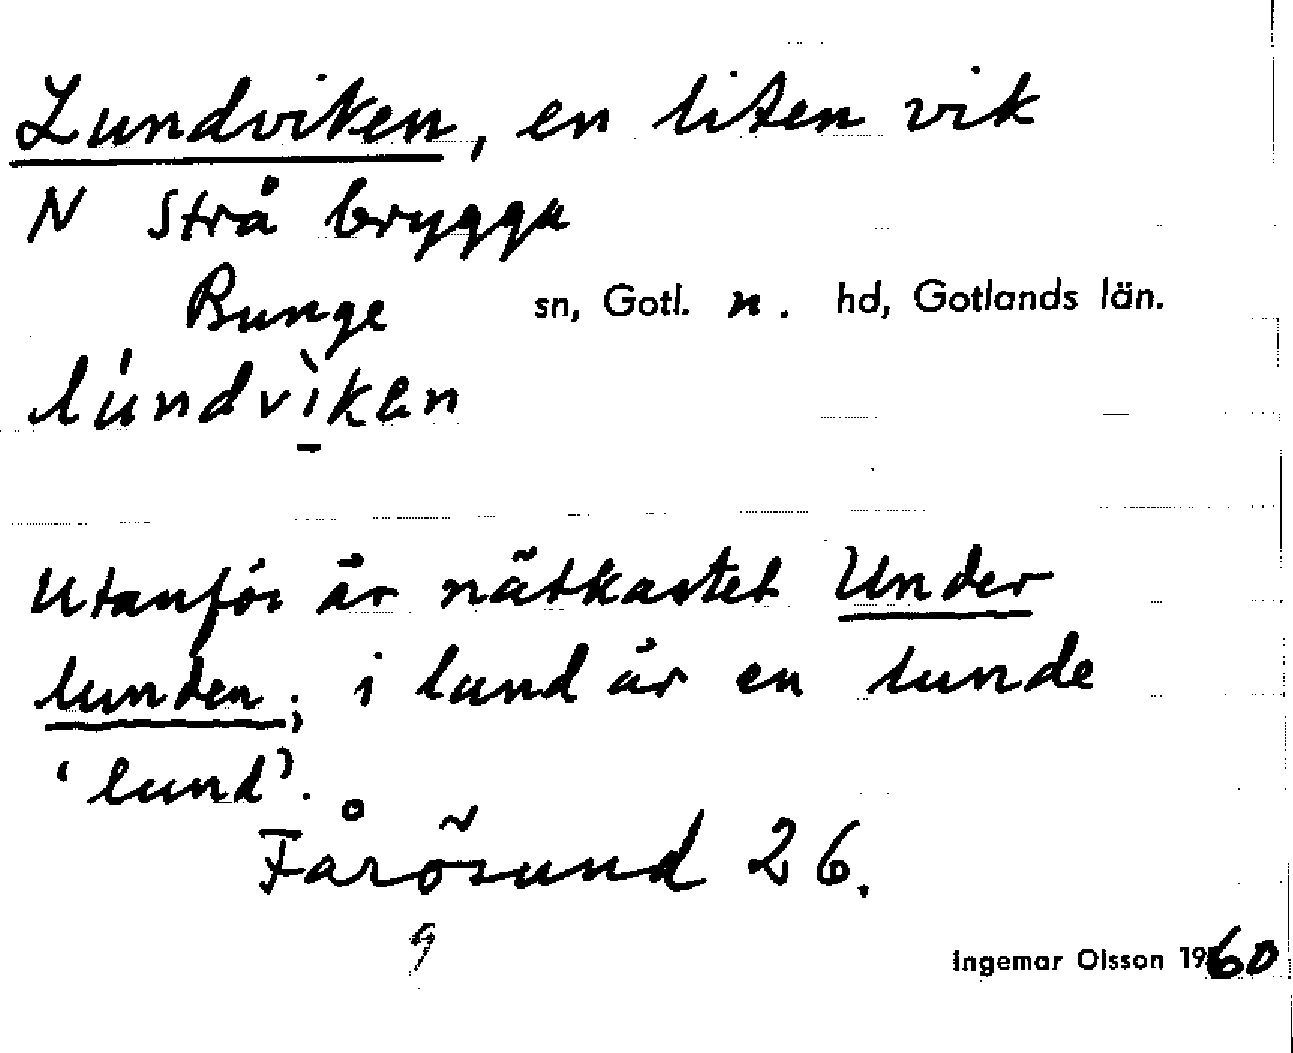 Lundviken, en liten vik
N Strå brygga
Bunge sn, Gotl. n. hd, Gotlands län.
lúndvìken
Utanför är nätkastet Under
lunden; i land är en lunde
'lund'.
Fårösund 26.
9
Ingemar Olsson 1960